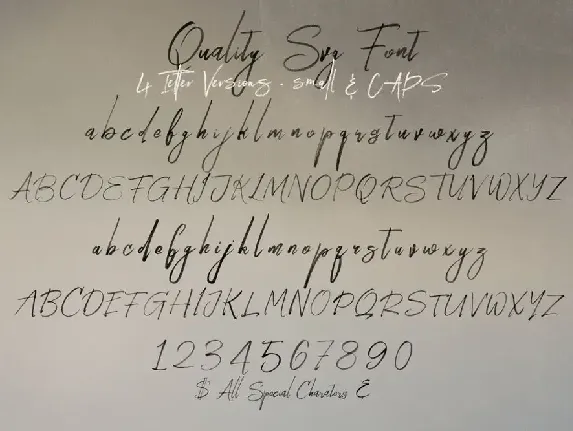 Quality Svg Font
4 letter Versions - small & CAPS
abcdefghijklmnopqrstuvwxyz
ABCDEFGHIJKLMNOPQRSTUVWXYZ
abcdefghijklmnopqrstuvwxyz
ABCDEFGHIJKLMNOPQRSTUVWXYZ
1234567890
$ All Special Charators &